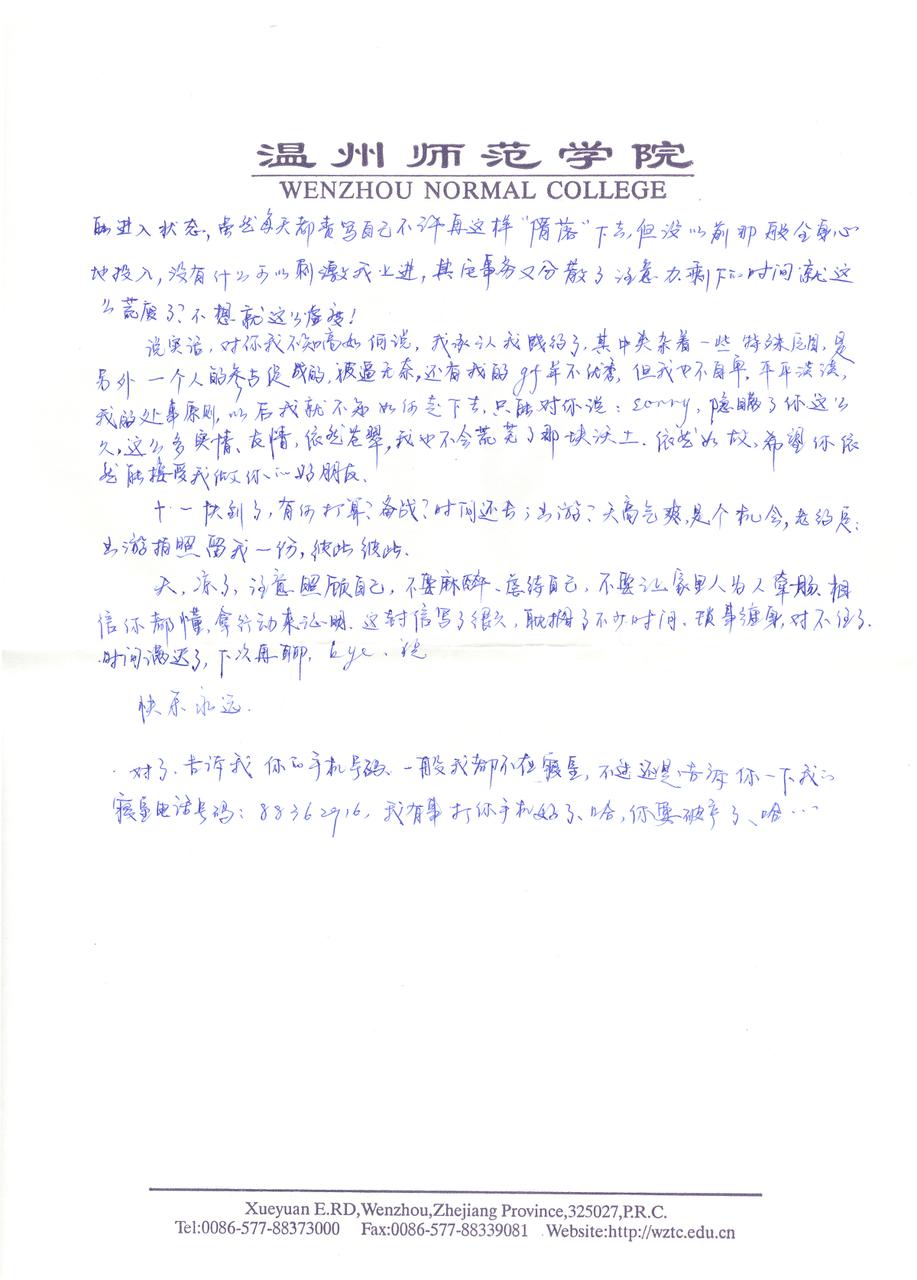 温州师范学院
WENZHOU NORMAL COLLEGE
能进入状态，虽然每天都责骂自己不许再这样“隋落”下去，但没以前那般全身心
地投入，没有什么可以刺激我上进，其它事务又分散了注意力，剩下的时间就这
么荒废了？不想就这么虚度！
说实话，对你我不知该如何说，我承认我毁约了，其中夹杂着一些特殊原因，是
另外一个人的参与促成的，被逼无奈，还有我的gf并不优秀，但我也不自卑，平平淡淡，
我的处事原则，以后我就不知如何走下去，只能对你说：sorry，隐瞒了你这么
久，这么多实情、友情，依然苍翠，我也不会荒芜了那块沃土．依然如故，希望你依
然能接受我做你的好朋友．
十一快到了，有何打算？备战？时间还长；出游？天高气爽，是个机会，老约定：
出游拍照留我一份，彼此彼此．
天，凉了，注意照顾自己，不要麻醉、虐待自己，不要让家里人为人牵肠．相
信你都懂，拿行动来证明．这封信写了很久，耽搁了不少时间、琐事缠身，对不住了．
时间满迟了，下次再聊，bye．祝
快乐永远．
对了、告诉我你的手机号码、一般我都不在寝室，不过还是告诉你一下我的
寝室电话号码：88362916，我有事打你手机好了、哈，你要破产了、哈…
Xueyuan E.RD,Wenzhou,Zhejiang Province,325027,P.R.C.
Tel:0086-577-88373000 Fax:0086-577-88339081 Website:http://wztc.edu.cn